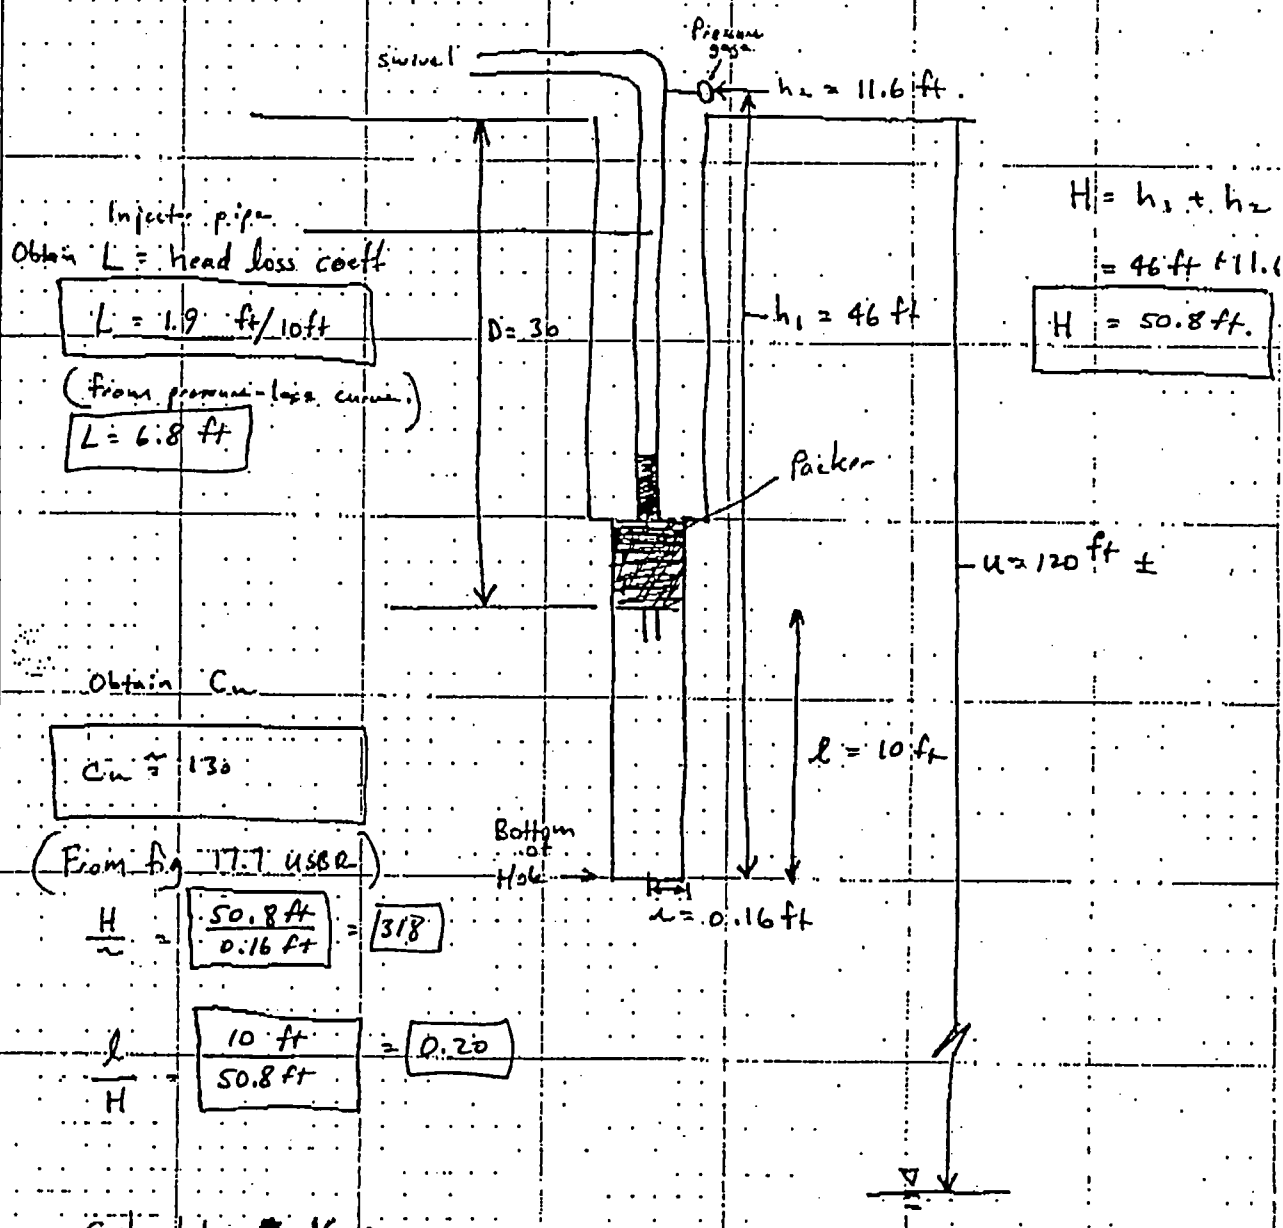 swivel
Pressure
gage
h₂ = 11.6 ft.
Injector pipe
Obtain L = head loss coeff
L = 1.9 ft/10ft
(from pressure-loss curve.)
L = 6.8 ft
D = 30
h₁ = 46 ft
H = h₁ + h₂
= 46 ft + 11.6
H = 50.8 ft.
Packer
u ≈ 120 ft ±
Obtain Cu
Cu ≈ 130
(From fig 17.7 USBR)
l = 10 ft
Bottom
of
Hole
r = 0.16 ft
H/r = 50.8 ft/0.16 ft = 318
l/H = 10 ft/50.8 ft = 0.20